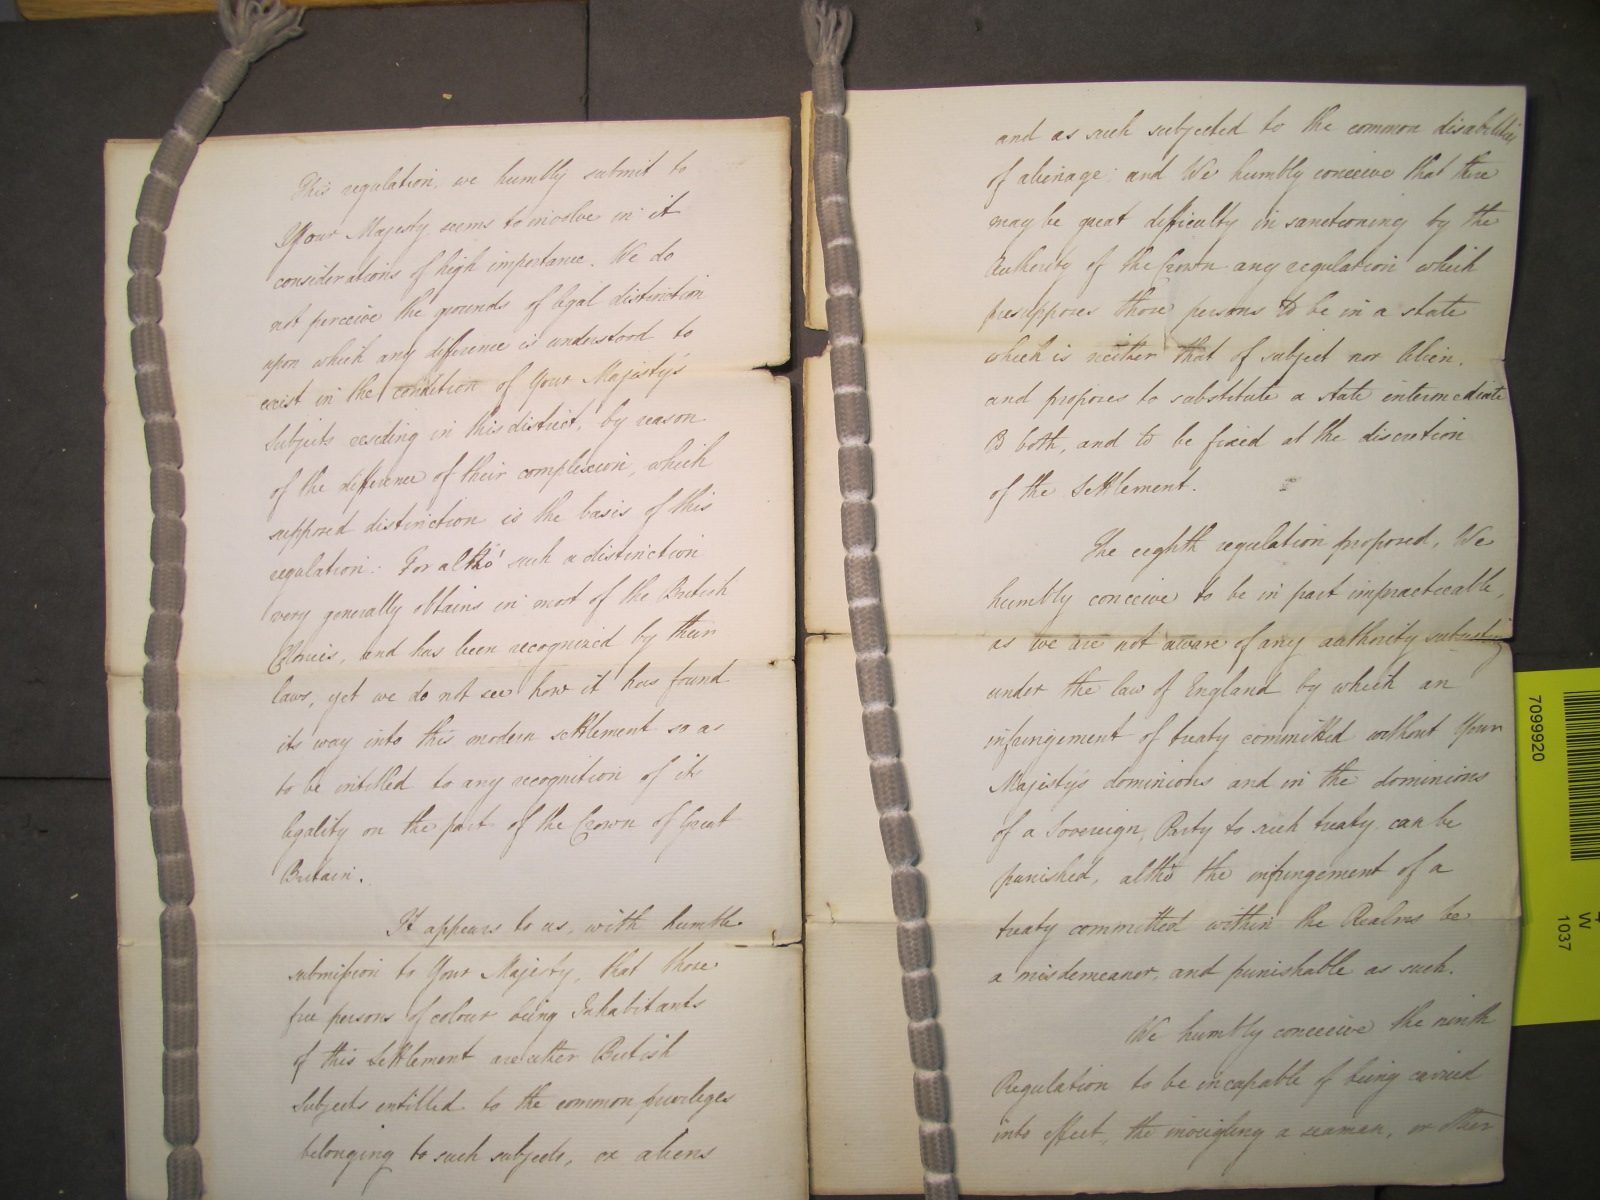 This regulation, we humbly submit to
Your Majesty seems to involve in it
considerations of high importance. We do
not perceive the grounds of legal distinction
upon which any difference is understood to
exist in the condition of Your Majesty's
Subjects residing in this district, by reason
of the difference of their complexion, which
supposed distinction is the basis of this
regulation: For altho' such a distinction
very generally obtains in most of the British
Colonies, and has been recognized by their
laws, yet we do not see how it has found
its way into this modern settlement so as
to be intitled to any recognition of its
legality on the part of the Crown of Great
Britain.
It appears to us, with humble
submission to Your Majesty, that those
free persons of colour being Inhabitants
of this Settlement are either British
Subjects entitled to the common privileges
belonging to such subjects, or aliens
and as such subjected to the common disabilities
of alienage: and We humbly conceive that there
may be great difficulty in sanctioning by the
Authority of the Crown any regulation which
presupposes those persons to be in a state
which is neither that of subject nor Alien,
and proposes to substitute a state intermediate
to both, and to be fixed at the discretion
of the Settlement.
The eighth regulation proposed, We
humbly conceive to be in part impracticable,
as we are not aware of any authority subsisting
under the law of England by which an
infringement of treaty committed without Your
Majesty's dominions and in the dominions
of a Sovereign, Party to such treaty can be
punished, altho the infringement of a
treaty committed within the Realms be
a misdemeanor, and punishable as such.
We humbly conceive the ninth
Regulation to be incapable of being carried
into effect, the inveigling a seaman, or other
7099920
W
1037